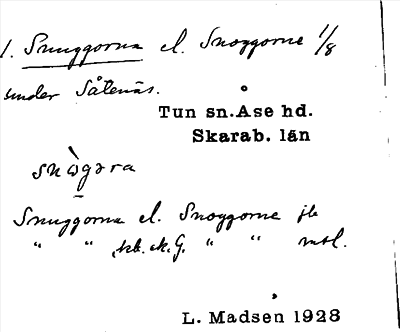 1. Snuggorna el. Snoggorne 1/8
under Såtenäs.
Tun sn. Åse hd.
Skarab. län
snògara
Snuggorna el. Snoggorne jb
" " hb. ek. G. " " mtl.
L. Madsen 1928